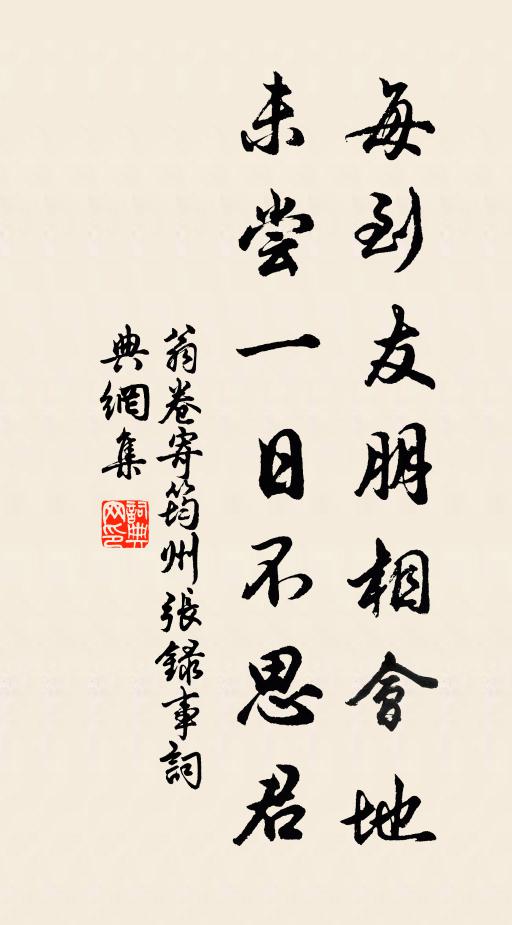 每到友朋相會地
未嘗一日不思君
翁卷寄筠州張錄事詞
典網集
詞典网印